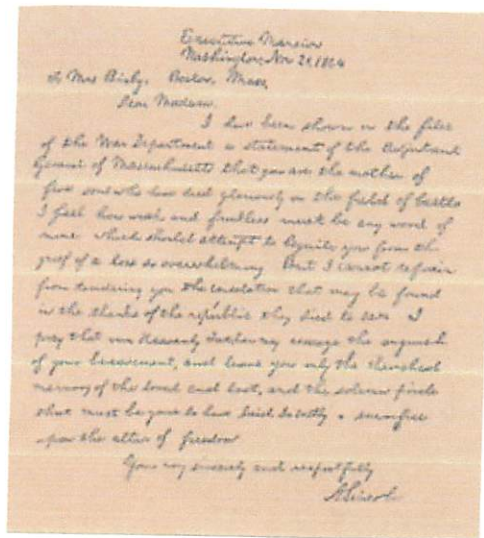 Executive Mansion
Washington, Nov 21, 1864
To Mrs Bixby, Boston, Mass,
Dear Madam.
I have been shown in the files
of the War Department a statement of the Adjutant
General of Massachusetts that you are the mother of
five sons who have died gloriously on the field of battle
I feel how weak and fruitless must be any word of
mine which should attempt to beguile you from the
grief of a loss so overwhelming But I cannot refrain
from tendering you the consolation that may be found
in the thanks of the republic they died to save I
pray that our Heavenly Father may assuage the anguish
of your bereavement, and leave you only the cherished
memory of the loved and lost, and the solemn pride
that must be yours to have laid so costly a sacrifice
upon the altar of freedom
Yours very sincerely and respectfully
A Lincoln